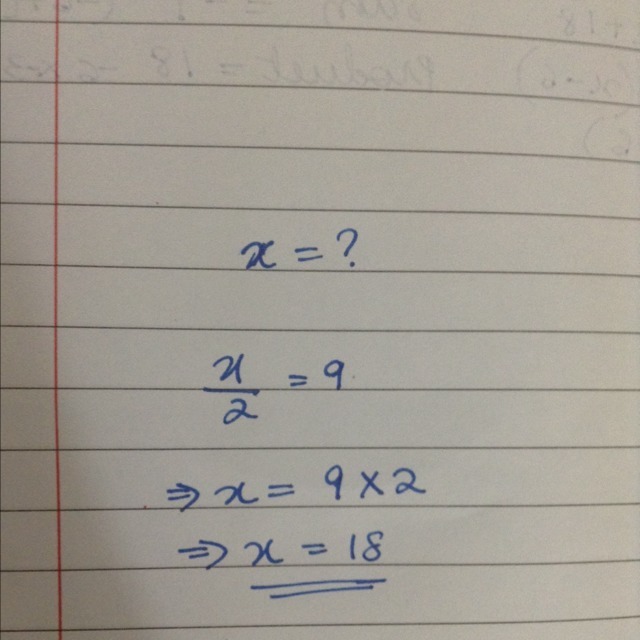 x = ?
x/2 = 9
⇒ x = 9 × 2
⇒ x = 18